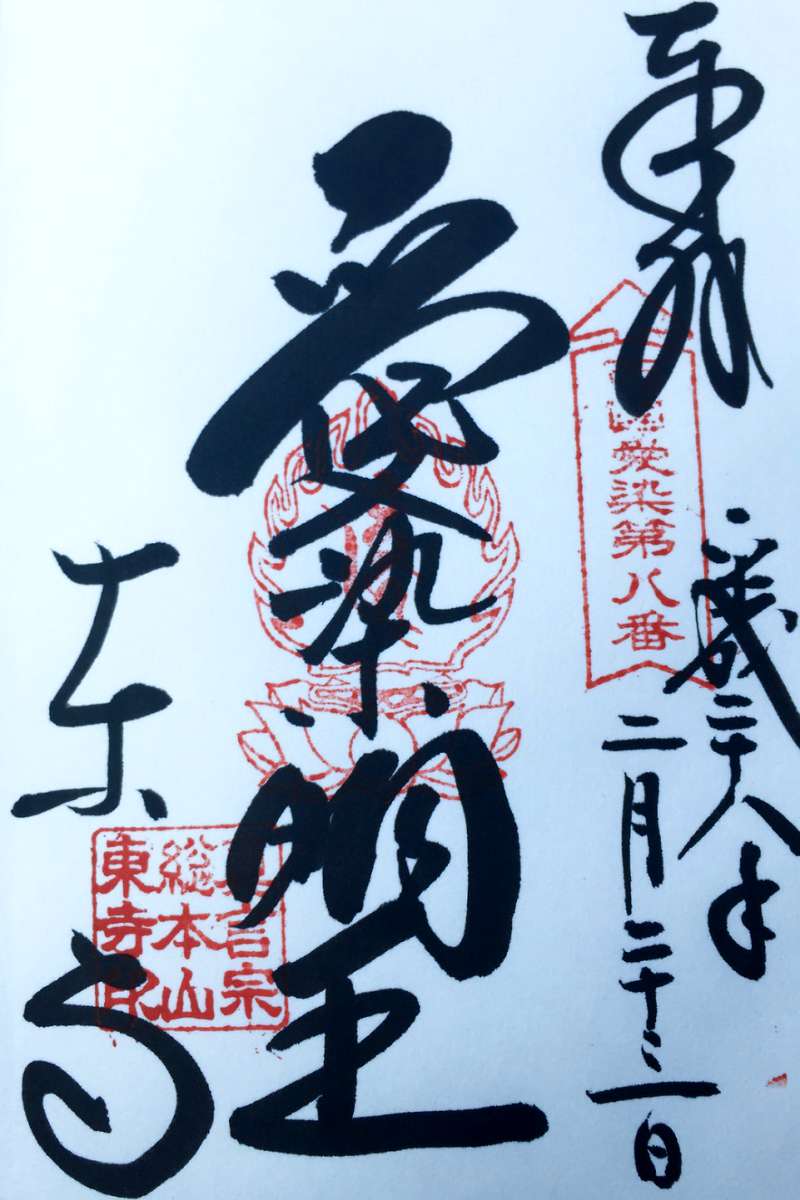 奉拝
西國愛染第八番
平成二十八年
二月二十三日
愛染明王
東寺
真言宗
総本山
東寺印